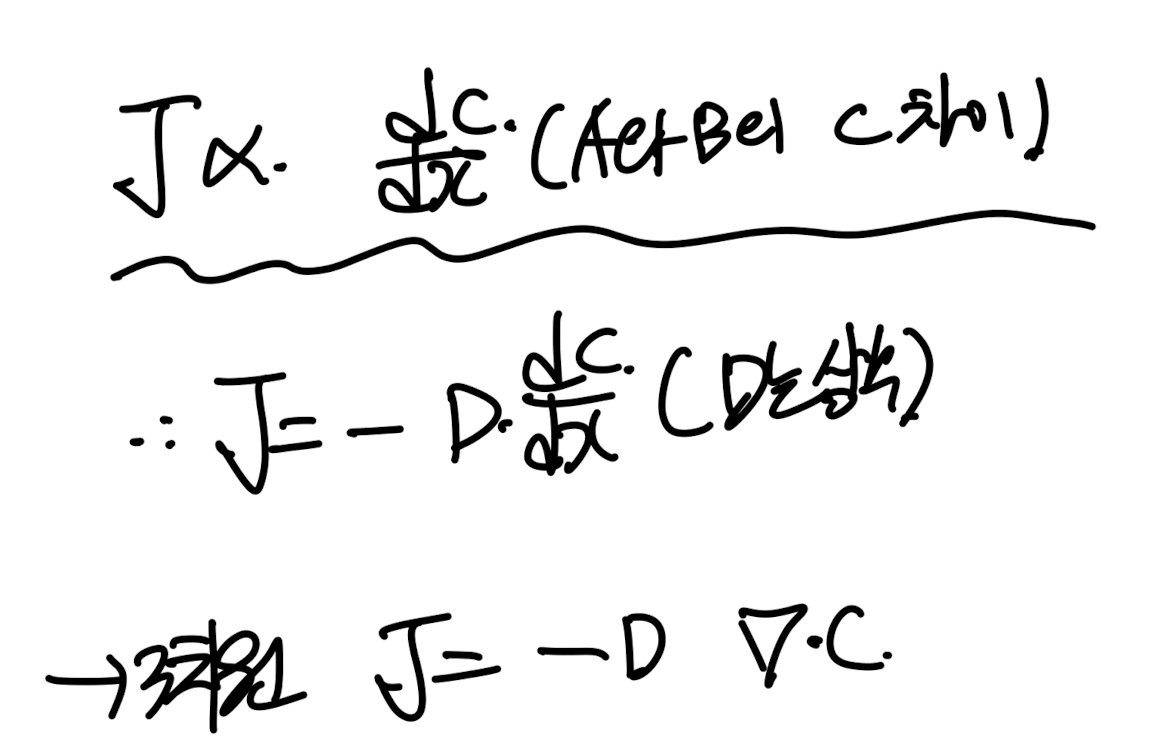 J ∝. dC/dx. (A와 B의 C 차이)
∴ J = - D. dC/dx. (D는 상수)
→ 3차원 J = - D ∇·C.